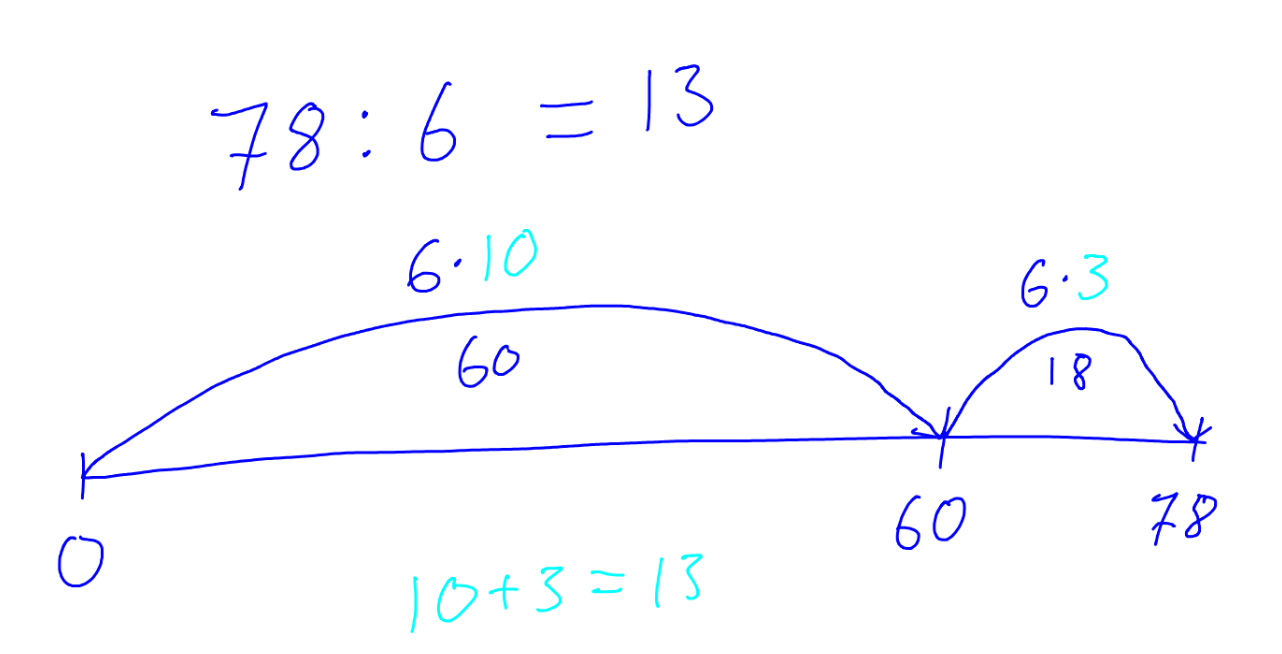 78 : 6 = 13
6 · 10
6 · 3
60
18
0
60
78
10 + 3 = 13